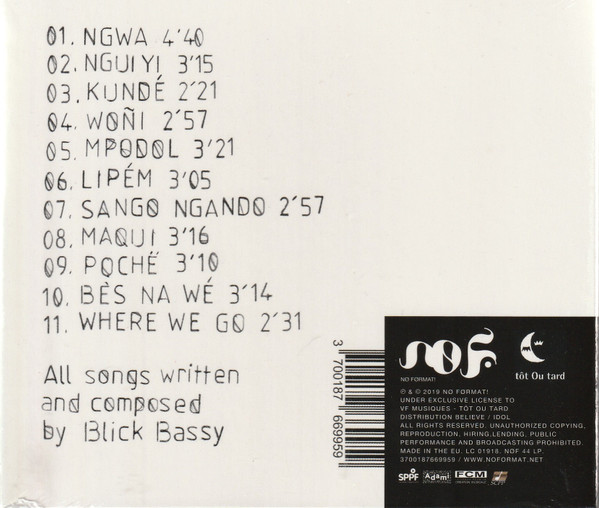 01. NGWA 4'40
02. NGUIYI 3'15
03. KUNDÉ 2'21
04. WOÑI 2'57
05. MPODOL 3'21
06. LIPÉM 3'05
07. SANGO NGANDO 2'57
08. MAQUI 3'16
09. POCHË 3'10
10. BÈS NA WÉ 3'14
11. WHERE WE GO 2'31
All songs written
and composed
by Blick Bassy
3 700187 669959
nøf.
NØ FØRMAT!
tôt Ou tard
℗ & © 2019 NØ FØRMAT!
UNDER EXCLUSIVE LICENSE TO
VF MUSIQUES - TÔT OU TARD
DISTRIBUTION BELIEVE / IDOL
ALL RIGHTS RESERVED. UNAUTHORIZED COPYING,
REPRODUCTION, HIRING.LENDING, PUBLIC
PERFORMANCE AND BROADCASTING PROHIBITED.
MADE IN THE EU. LC 01918. NØF 44 LP.
3700187669959 / WWW.NOFORMAT.NET
SPPF Adami FCM